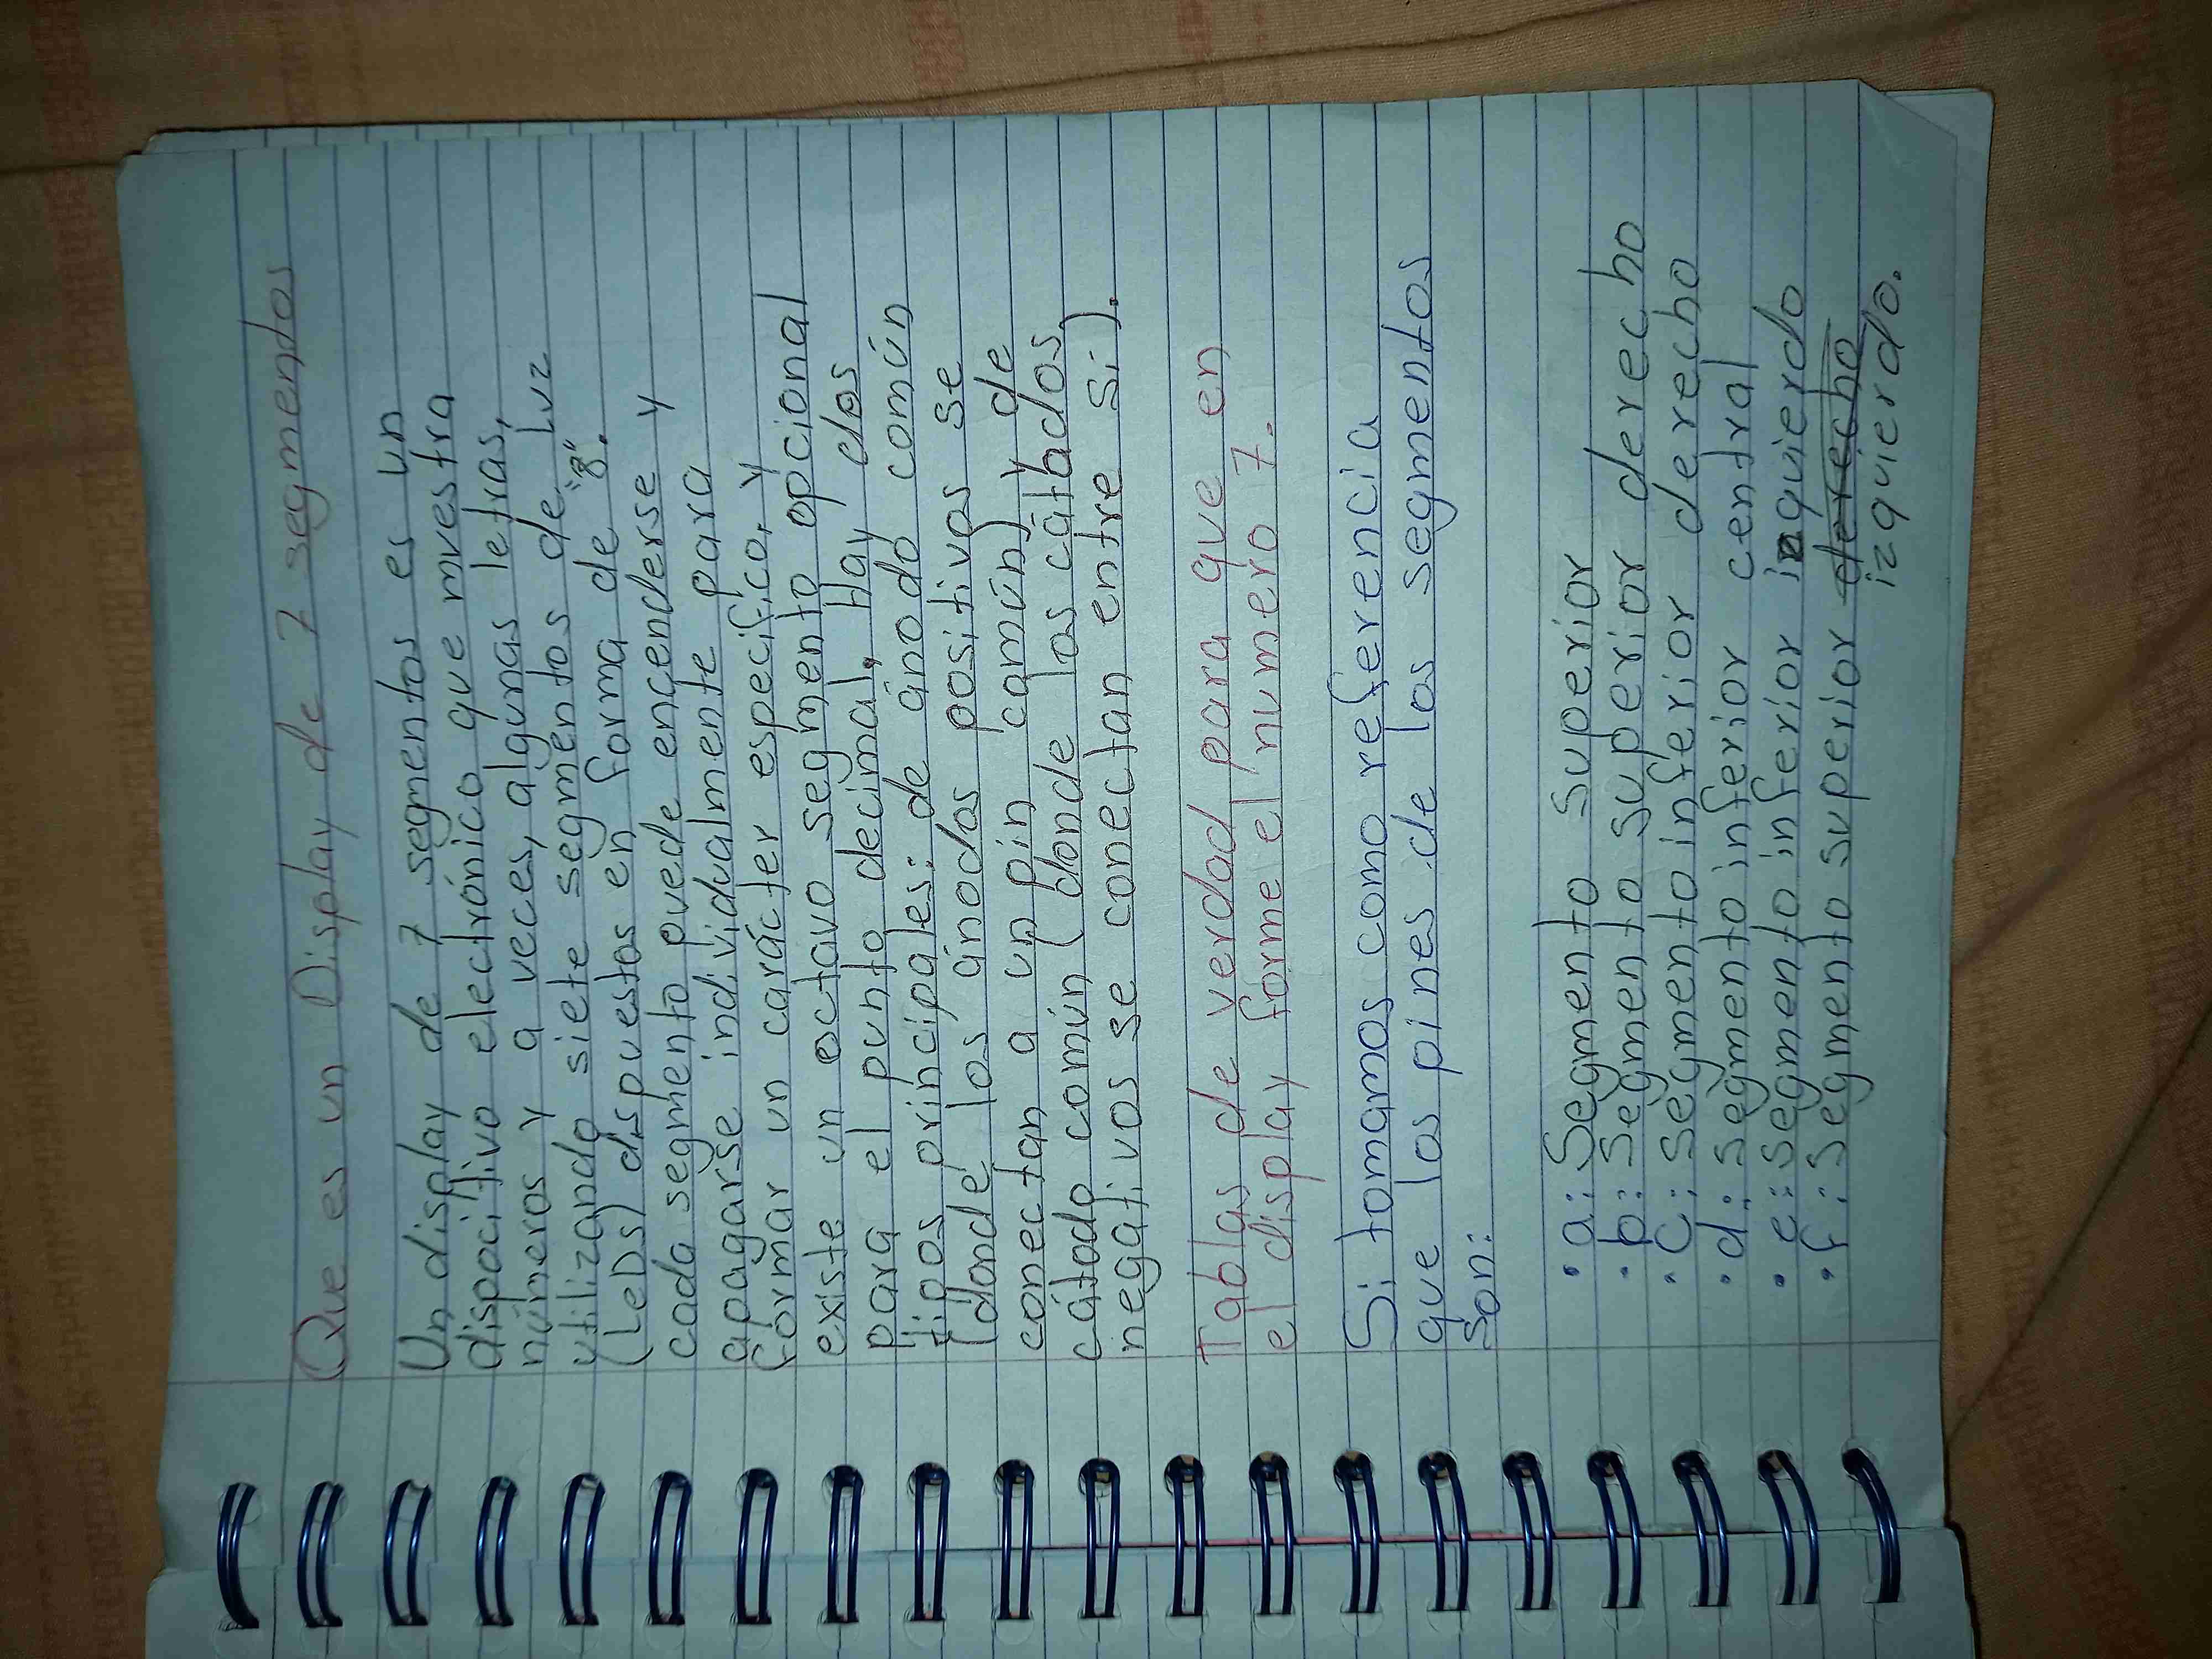 Que es un Display de 7 segmentos
Un display de 7 segmentos es un
dispocitivo electrónico que muestra
números y a veces, algunas letras,
utilizando siete segmentos de luz
(LeDs) dispuestos en forma de "8".
cada segmento puede encenderse y
apagarse individualmente para
formar un carácter especifico, y
existe un octavo segmento opcional
para el punto decimal, Hay dos
tipos principales: de ánodo común
(donde los ánodos positivos se
conectan a un pin común) y de
cátodo común (donde los cátodos
negativos se conectan entre si).
Tablas de verdad para que en
el display forme el numero 7.
Si tomamos como referencia
que los pines de los segmentos
son:
• a: Segmento superior
• b: segmento superior derecho
• c: segmento inferior derecho
• d: segmento inferior central
• e: segmento inferior izquierdo
• f: segmento superior derecho
izquierdo.